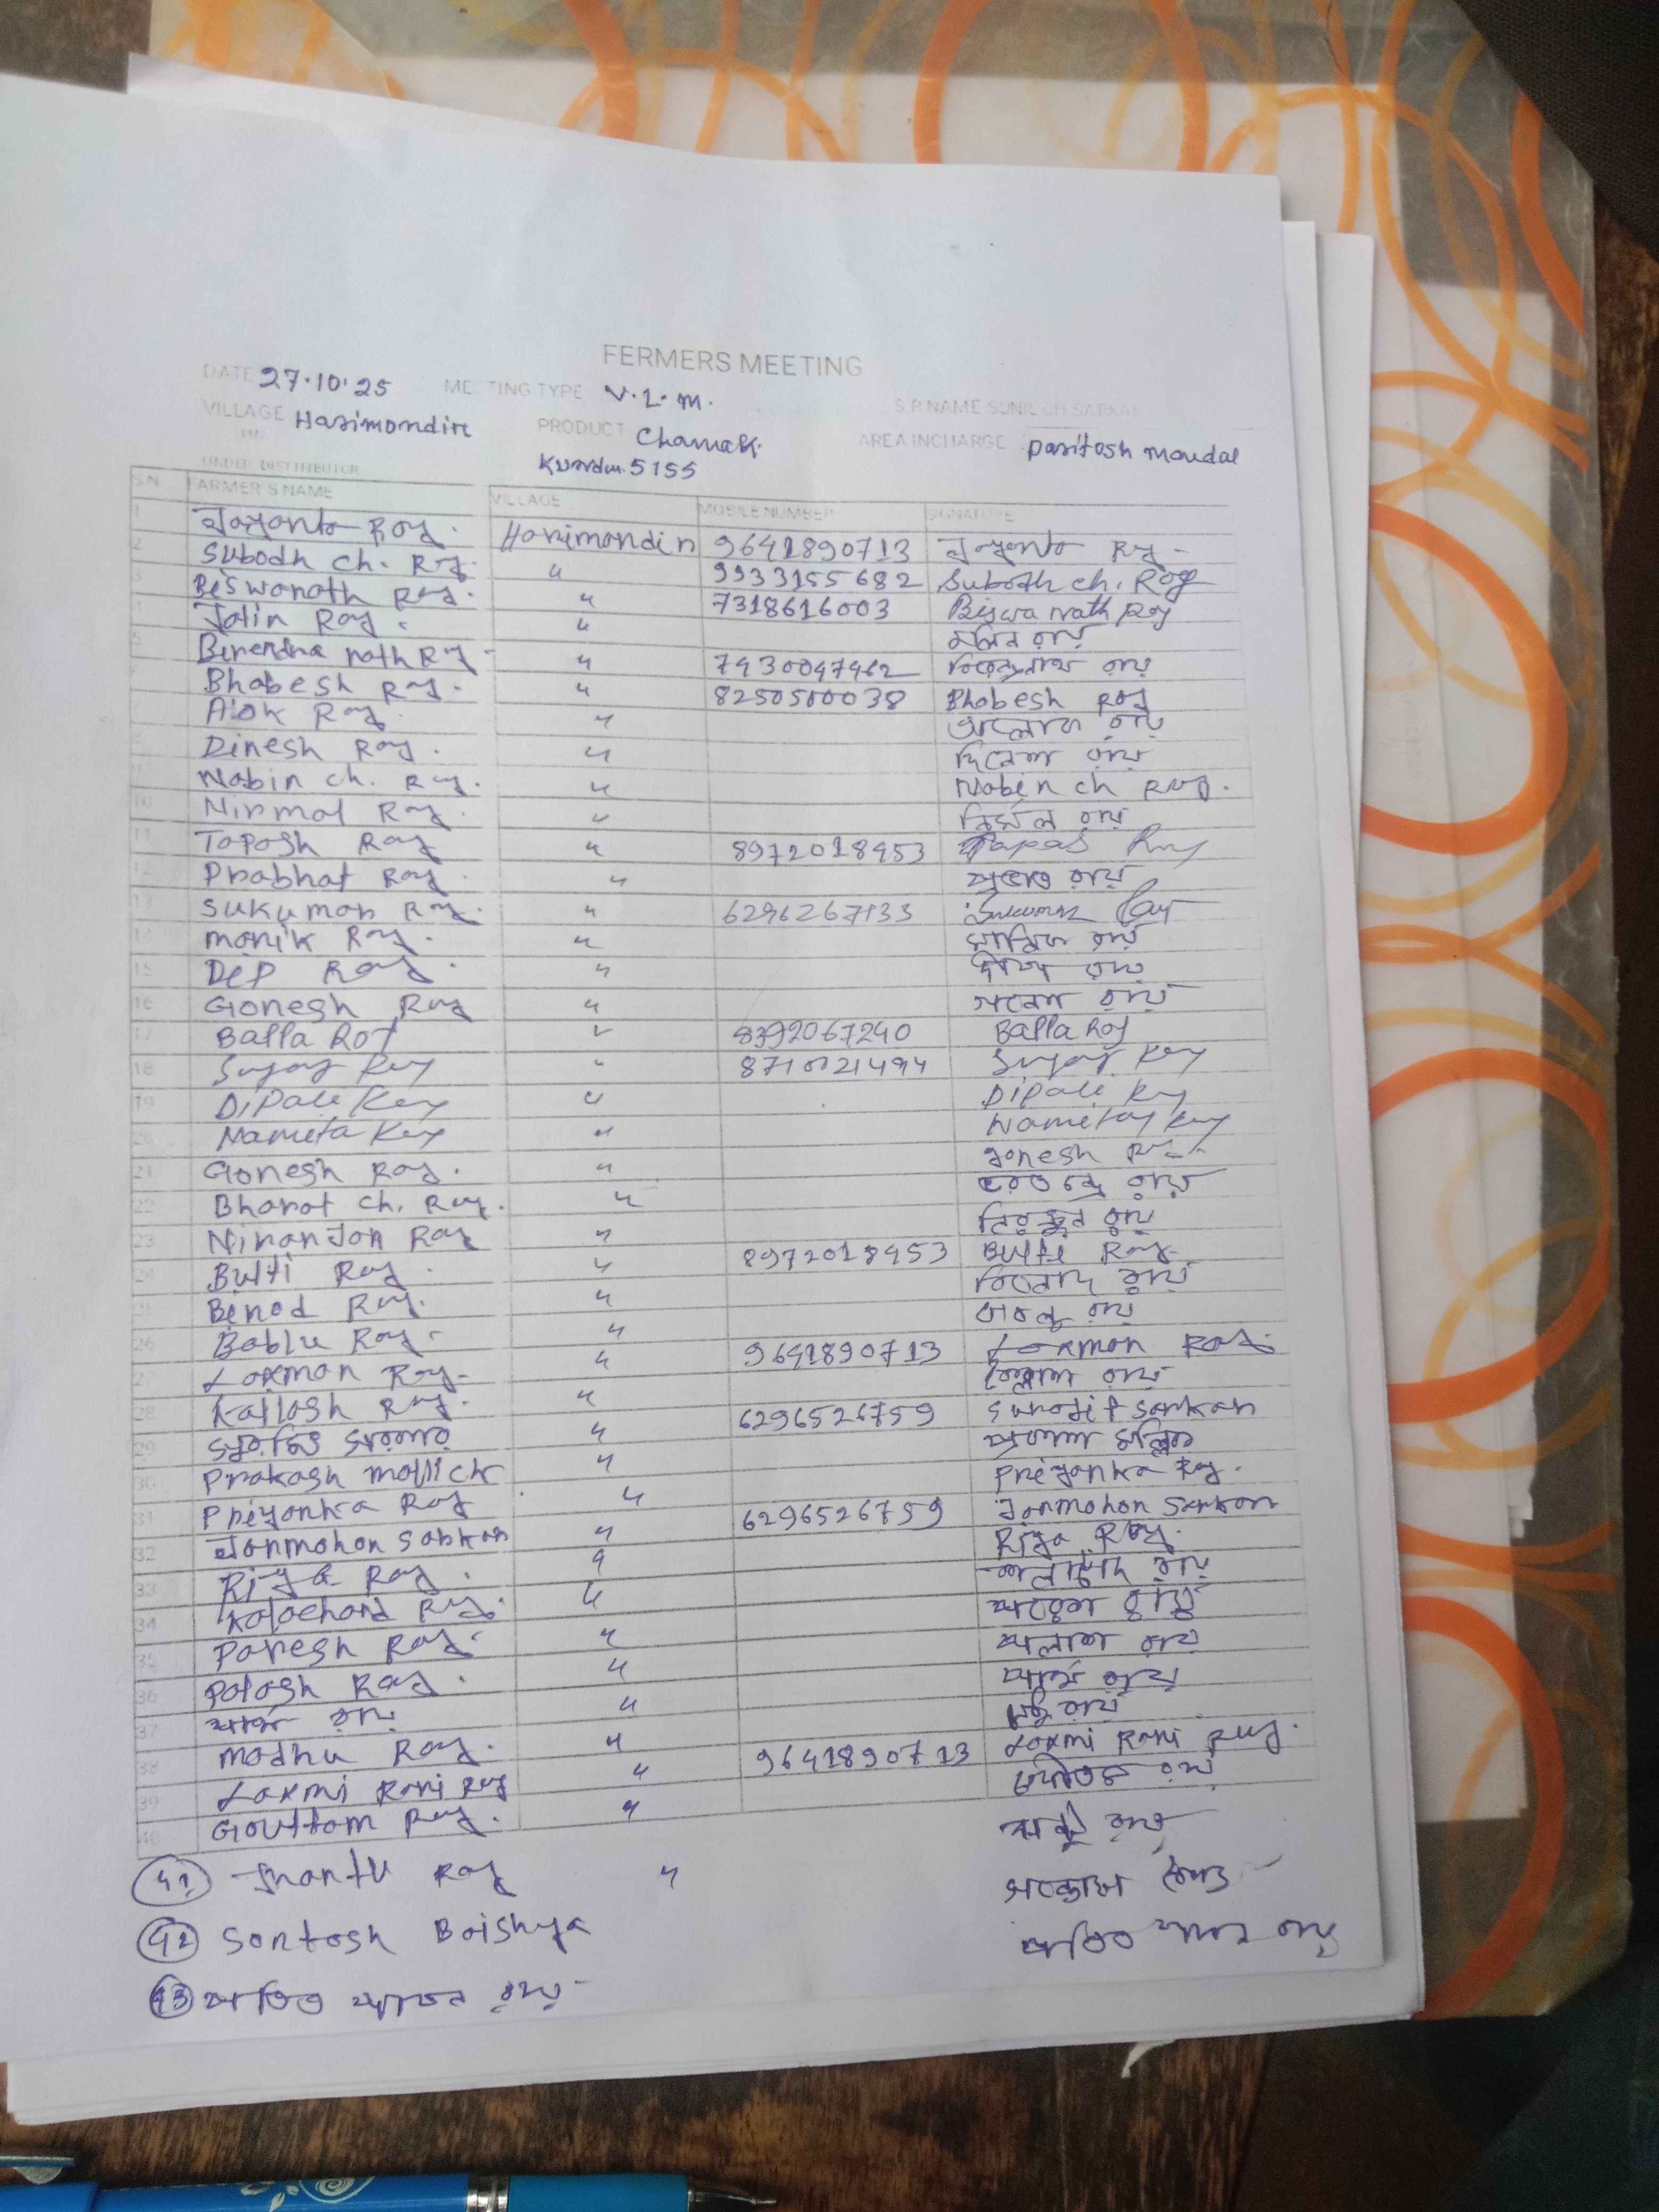 FERMERS MEETING
DATE 27.10.25 MEETING TYPE V.L.M. S.R NAME SUNIL CH SARKAR
VILLAGE Harimondir PRODUCT Chamak AREA INCHARGE Paritosh Mondal
Kundu 5155
UNDER DISTTRIBUTOR
S.N FARMER'S NAME VILLAGE MOBILE NUMBER SIGNATURE
1 Joyanto Roy. Harimondir 9641890713 Joyanto Roy
2 Subodh Ch. Roy. " 9933155682 Subodh ch. Roy
3 Biswonath Roy. " 7318616003 Biswanath Roy
4 Jolin Roy. " রায়
5 Birendra nath Roy " 7430047462 রায়
6 Bhobesh Roy. " 8250500038 Bhobesh Roy
7 Alok Roy " আলোক রায়
8 Dinesh Roy. " দিনেশ রায়
9 Nobin ch. Roy. " Nobin ch Roy.
10 Nirmol Roy. " নির্মল রায়
11 Toposh Roy " 8972018453 Tapas Roy
12 Prabhat Roy. " প্রভাত রায়
13 Sukumar Roy. " 6296267133 Sukumar Roy
14 Monik Roy. " মানিক রায়
15 Dip Roy. " দীপ রায়
16 Gonesh Roy " গনেশ রায়
17 Bappa Roy " 8392067240 Bappa Roy
18 Sujoy Roy " Sujoy Roy
19 Dipali Roy " Dipali Roy
20 Nameta Roy " Roy
21 Gonesh Roy. " gonesh
22 Bhorot Ch. Roy. " ভরত চন্দ্র রায়
23 Niranjon Roy " নিরঞ্জন রায়
24 Bulti Roy. " 8972018453 Bulti Roy
25 Benod Roy. " বিনোদ রায়
26 Bablu Roy. " বাবলু রায়
27 Loxmon Roy. " 9641890713 Loxmon Roy.
28 Kailash Roy. " কৈলাশ রায়
29 সুরজিত সরকার " 6296526759 Surojit Sarkar
30 Prokash Mollick " প্রকাশ মল্লিক
31 Priyonka Roy " Priyonka Roy.
32 Jonmohon Sarkar " 6296526759 Jonmohon Sarkar
33 Riya Roy. " Riya Roy.
34 Kolachand Roy. " কালাচাঁদ রায়
35 Poresh Roy. " পরেশ রায়
36 Polash Roy. " পলাশ রায়
37 পার্থ রায় " পার্থ রায়
38 Modhu Roy. " মধু রায়
39 Loxmi Rani Roy " 9641890713 Loxmi Rani Roy.
40 Gouttom Roy. " গৌতম রায়
41 Jhantu Roy " রায়
42 Sontosh Boishya সন্তোষ বৈশ্য
43 পতিত পাবন রায় পতিত পাবন রায়